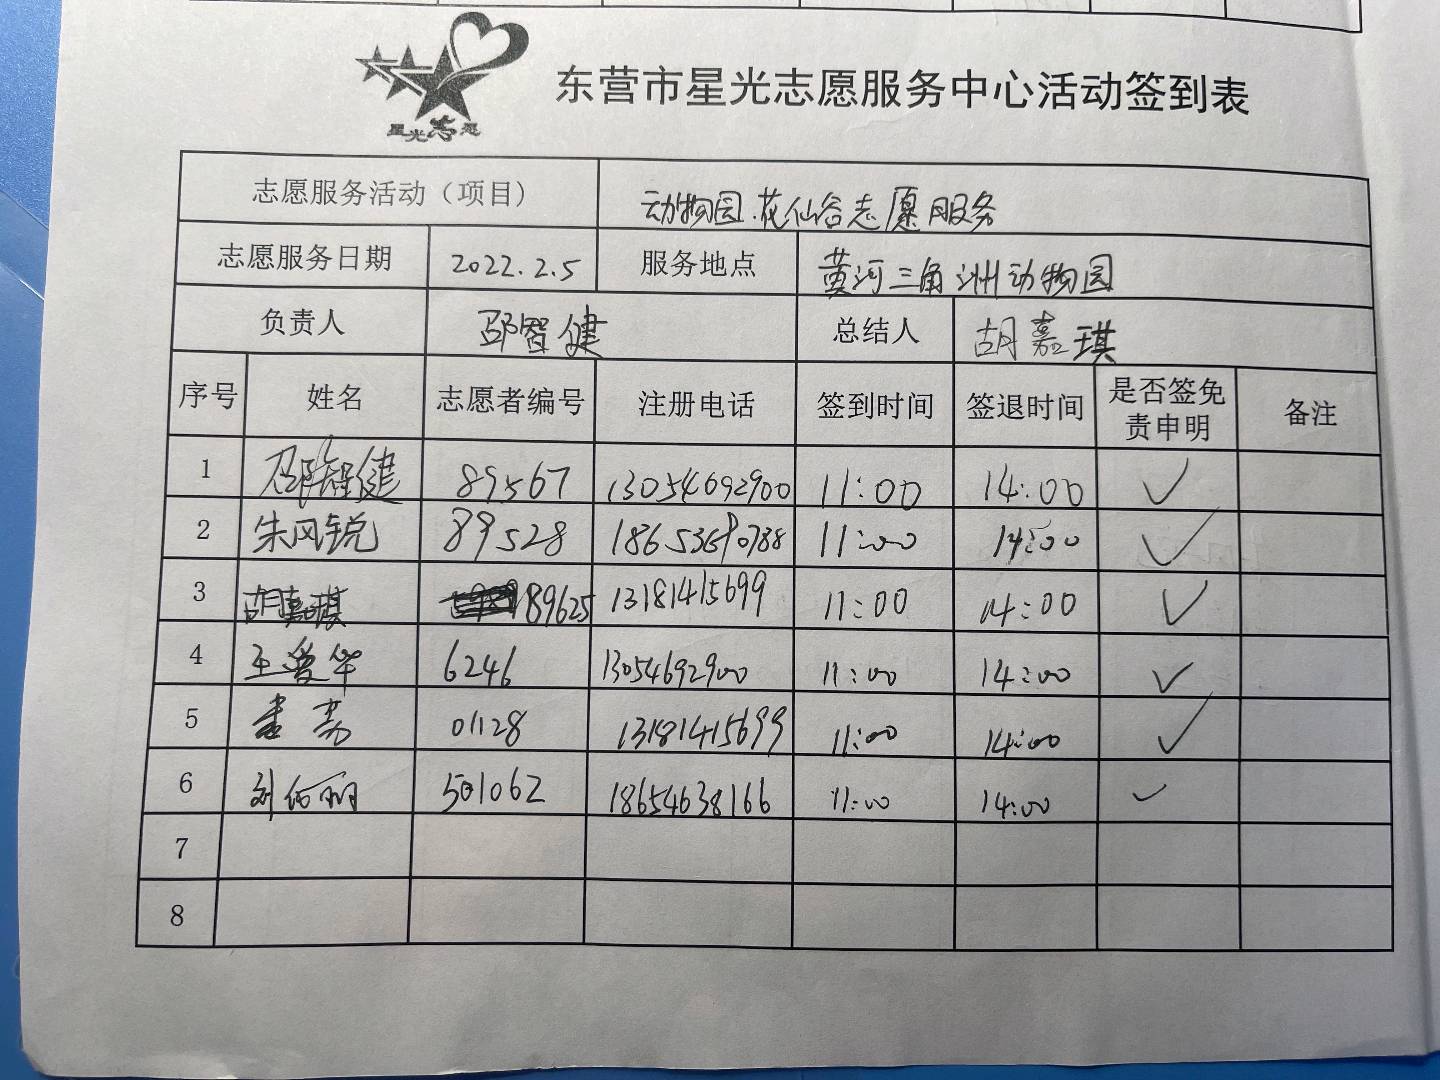 星光志愿
东营市星光志愿服务中心活动签到表
志愿服务活动（项目） 动物园.花仙谷志愿服务
志愿服务日期 2022.2.5 服务地点 黄河三角洲动物园
负责人 邵智健 总结人 胡嘉琪
序号 姓名 志愿者编号 注册电话 签到时间 签退时间 是否签免责申明 备注
1 邵智健 89567 13054692900 11:00 14:00 ✓
2 朱风锐 89528 11:00 14:00 ✓
3 胡嘉琪 89625 13181415699 11:00 14:00 ✓
4 王爱华 6246 13054692900 11:00 14:00 ✓
5 01128 13181415699 11:00 14:00 ✓
6 501062 18654638166 11:00 14:00 ✓
7
8